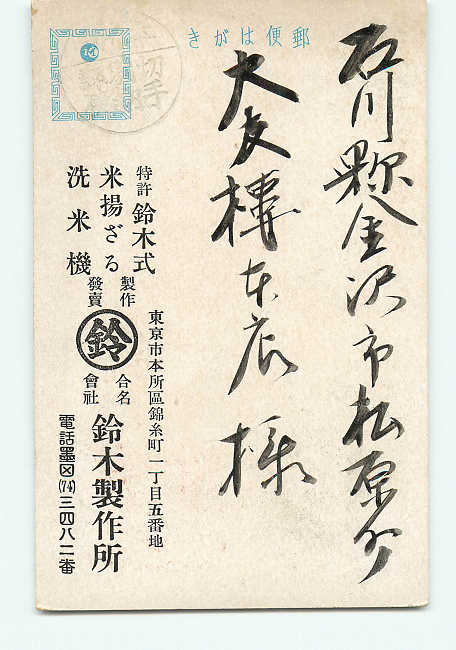 郵便はがき
石川縣金沢市松原町
大友樓本店 様
東京市本所區錦糸町一丁目五番地
特許 鈴木式
米揚ざる
洗米機
製作
發賣
鈴
合名
會社
鈴木製作所
電話墨田(74)三四八二番
切手